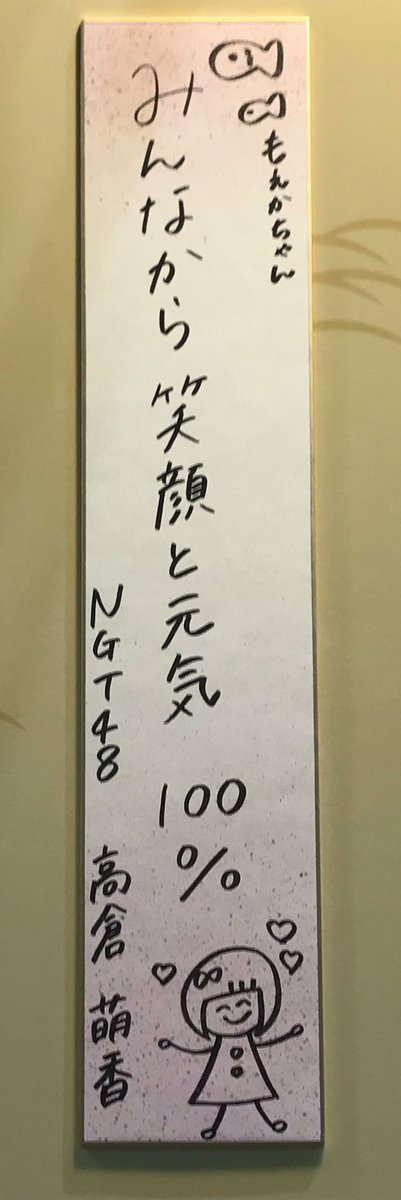 もえかちゃん
みんなから 笑顔と元気 100%
NGT48 高倉 萌香